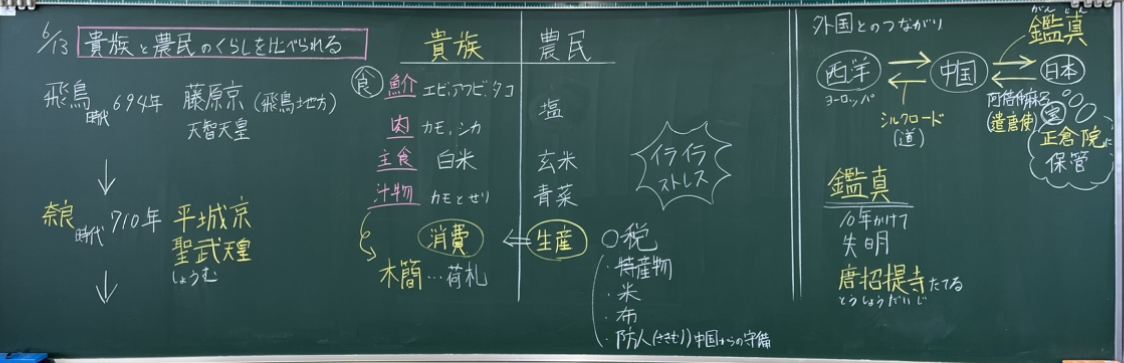 6/13 貴族と農民のくらしを比べられる
飛鳥時代 694年 藤原京(飛鳥地方)
天智天皇
奈良時代 710年 平城京
聖武天皇
しょうむ
貴族 農民
食 魚介 エビ、アワビ、タコ 塩
肉 カモ、シカ
主食 白米 玄米
汁物 カモとせり 青菜
消費 ⇐ 生産
木簡…荷札
イライラ
ストレス
○税
・特産物
・米
・布
・防人(さきもり)中国からの守備
外国とのつながり
がんじん
鑑真
西洋 中国 日本
ヨーロッパ
シルクロード
(道)
阿倍仲麻呂
(遣唐使)
宝
正倉院に
保管
鑑真
10年かけて
失明
唐招提寺たてる
とうしょうだいじ